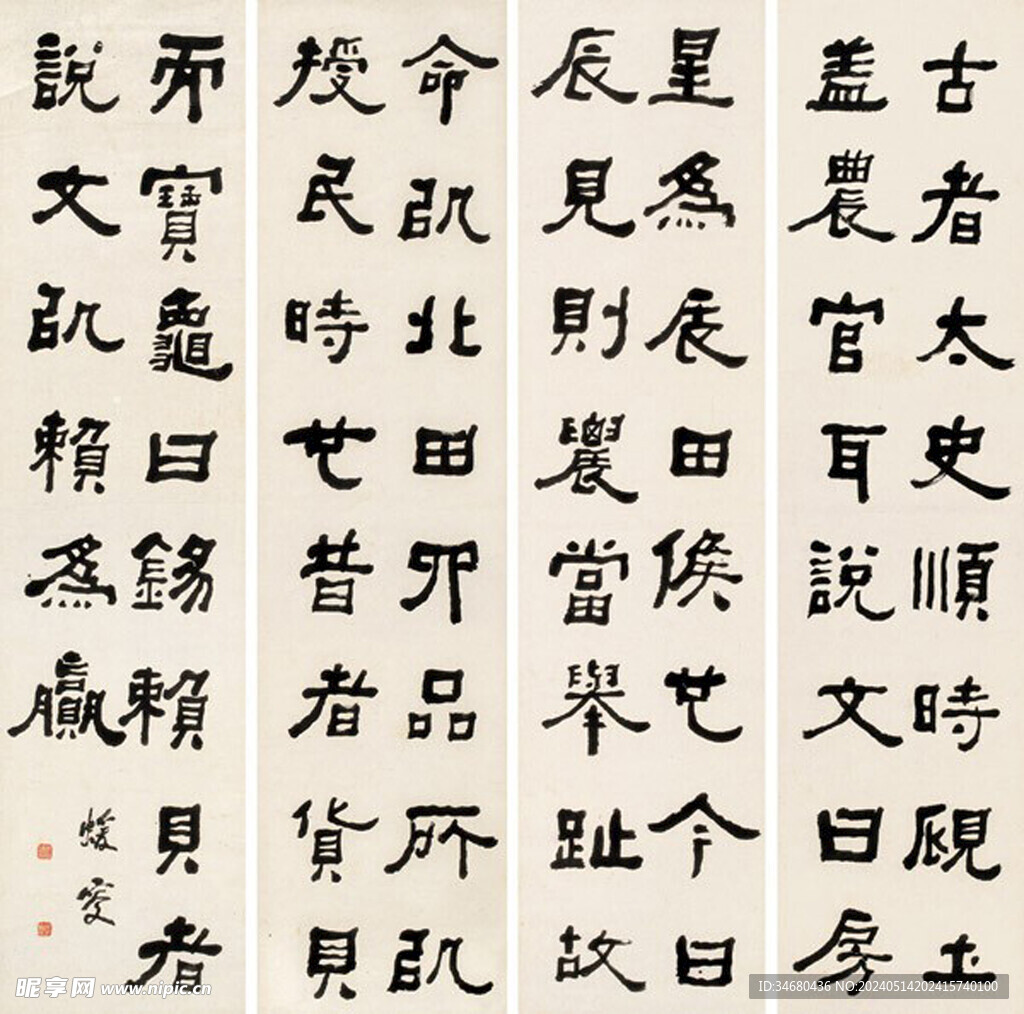 古者太史順時覛土
盖農官耳說文曰房
星為辰田候也今曰
辰見則農當舉趾故
命以北田卯品所以
授民時也昔者貨貝
而寶龜曰錫賴貝者
說文以賴為贏
蝯叟
昵享网 www.nipic.cn
ID:34680436 NO:20240514202415740100